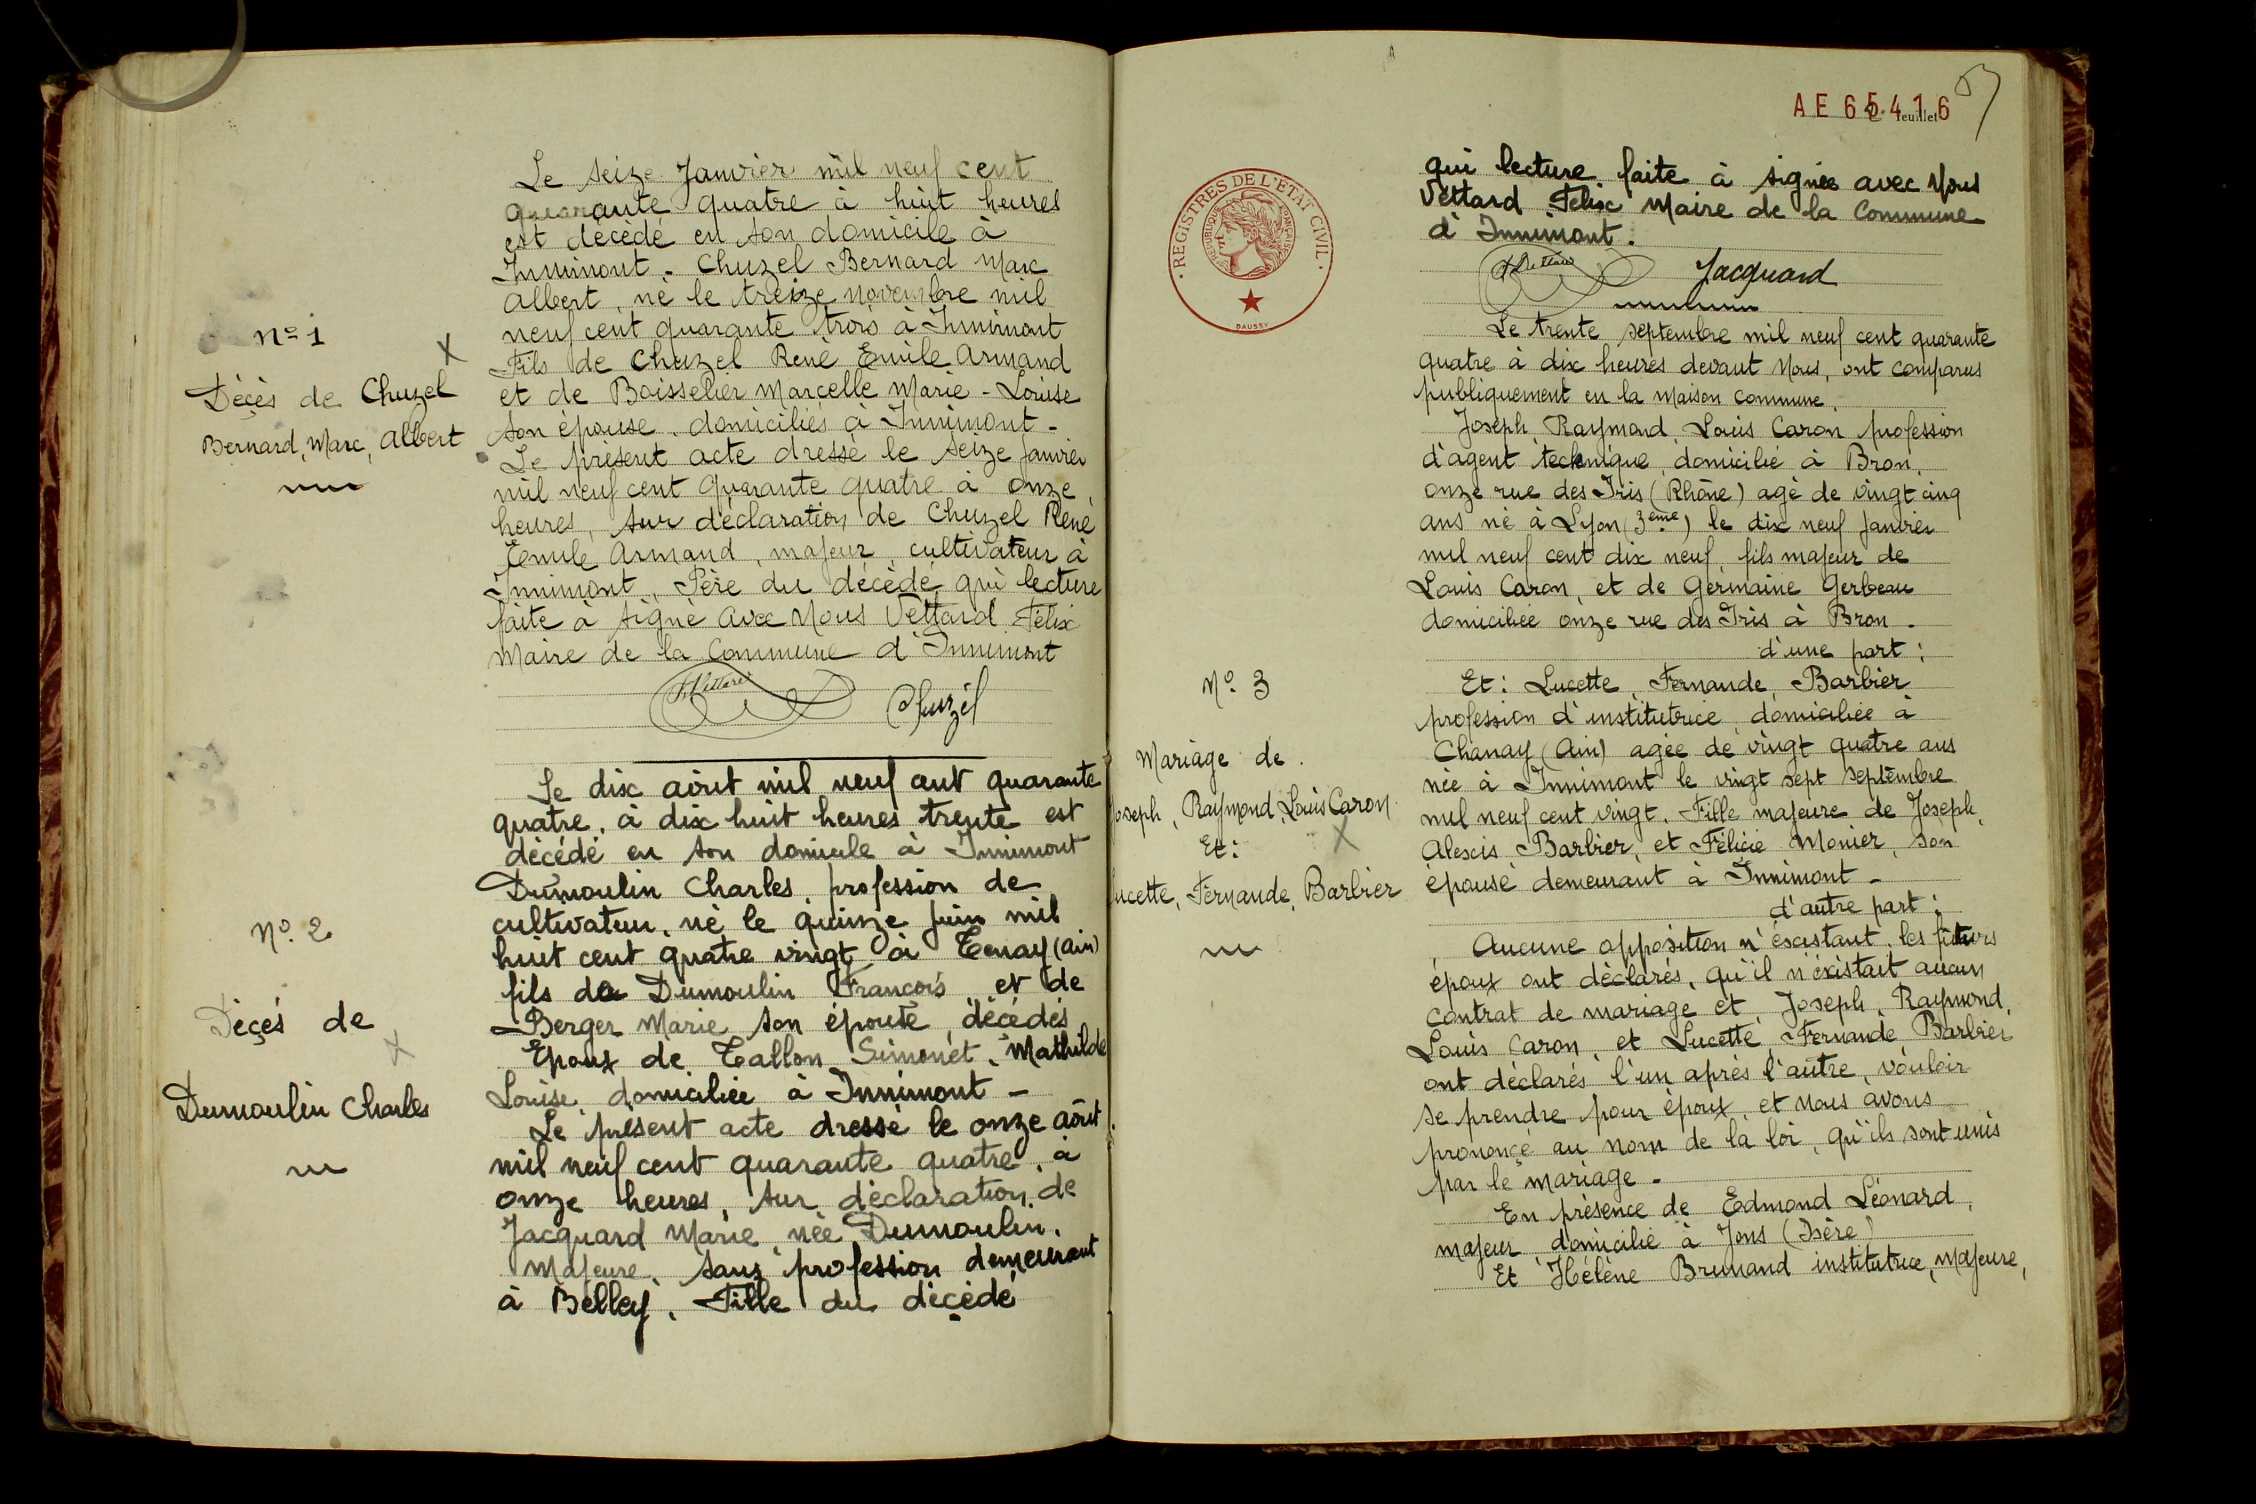 Le seize Janvier mil neuf cent
quarante quatre à huit heures
est décédé en son domicile à
Innimont. Chuzel Bernard Marc
Albert, né le treize novembre mil
neuf cent quarante trois à Innimont
Fils de Chuzel René Emile Armand
et de Boisselier Marcelle Marie-Louise
son épouse, domiciliés à Innimont-
Le présent acte dressé le seize Janvier
mil neuf cent quarante quatre à onze
heures, sur déclaration de Chuzel René
Emile Armand, majeur cultivateur à
Innimont, Père du décédé qui lecture
faite à signé avec Nous Vettard Félix
Maire de la Commune d'Innimont
F Vettard
Chuzel
N° 1
Décès de Chuzel
Bernard, Marc, Albert
Le dix aôut mil neuf cent quarante
quatre, à dix huit heures trente est
décédé en son domicile à Innimont
Dumoulin Charles, profession de
cultivateur, né le quinze Juin mil
huit cent quatre vingt à Tenay (Ain)
fils de Dumoulin François et de
Berger Marie son épouse, décédés
Epoux de Tallon Simonet, Mathilde
Louise, domiciliée à Innimont -
Le présent acte dressé le onze aôut
mil neuf cent quarante quatre, à
onze heures, sur déclaration de
Jacquard Marie née Dumoulin,
Majeure, sans profession demeurant
à Belley, Fille du décédé
N° 2
Décés de
Dumoulin Charles
AE 65416
2e feuillet
REGISTRES DE L'ETAT CIVIL
REPUBLIQUE FRANÇAISE
DAUSSY
qui lecture faite à signée avec Nous
Vettard Félix Maire de la Commune
d'Innimont.
F Vettard
Jacquard
Le trente septembre mil neuf cent quarante
quatre à dix heures devant Nous, ont comparus
publiquement en la Maison Commune,
Joseph, Raymond, Louis Caron profession
d'agent technique, domicilié à Bron,
onze rue des Iris (Rhône) agé de vingt cinq
ans né à Lyon (3ème) le dix neuf Janvier
mil neuf cent dix neuf, fils majeur de
Louis Caron, et de Germaine Gerbeau
domiciliée onze rue des Iris à Bron.
d'une part;
Et: Lucette, Fernande, Barbier
profession d'institutrice domiciliée à
Chanay (Ain) agée de vingt quatre ans
née à Innimont le vingt sept septembre
mil neuf cent vingt, Fille majeure de Joseph,
Alexis Barbier, et Félicie Monier, son
épouse demeurant à Innimont-
d'autre part;
Aucune opposition n'éxistant, les futurs
époux ont déclarés, qu'il n'éxistait aucun
contrat de mariage et, Joseph, Raymond,
Louis Caron, et Lucette, Fernande Barbier
ont déclarés l'un après l'autre, vouloir
se prendre pour époux, et nous avons
prononçé au nom de la loi, qu'ils sont unis
par le mariage-
En présence de Edmond Léonard,
majeur domicilié à Jons (Isère)
Et Hélène Brunand institutrice, majeure,
N° 3
Mariage de
Joseph, Raymond, Louis Caron
Et:
Lucette, Fernande, Barbier